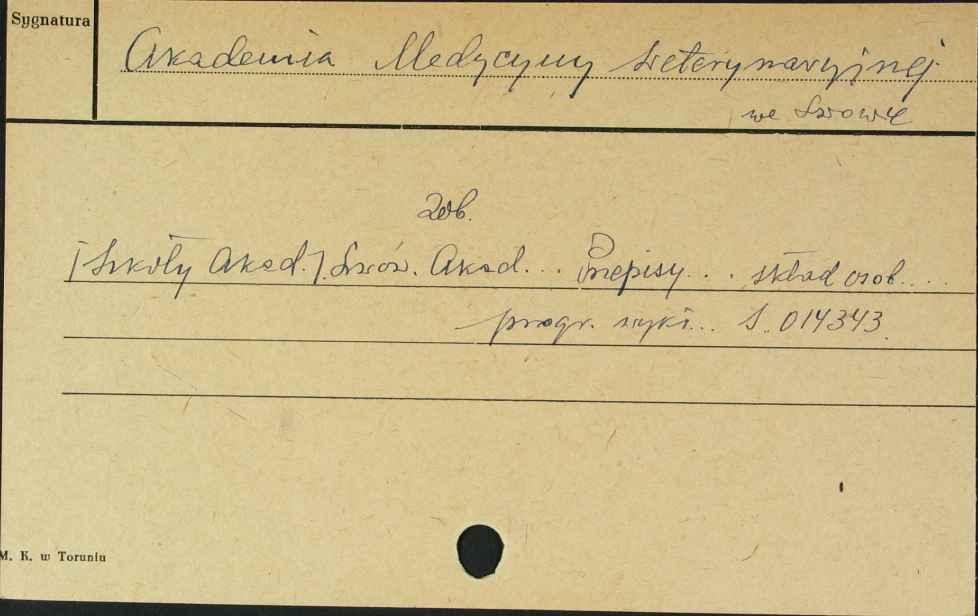 Sygnatura
Akademia Medycyny Weterynaryjnej
we Lwowie
Zob.
[Szkoły Akad.] Lwów. Akad... Przepisy... skład osob....
progr. wykł... S. 014343.
M. K. w Toruniu